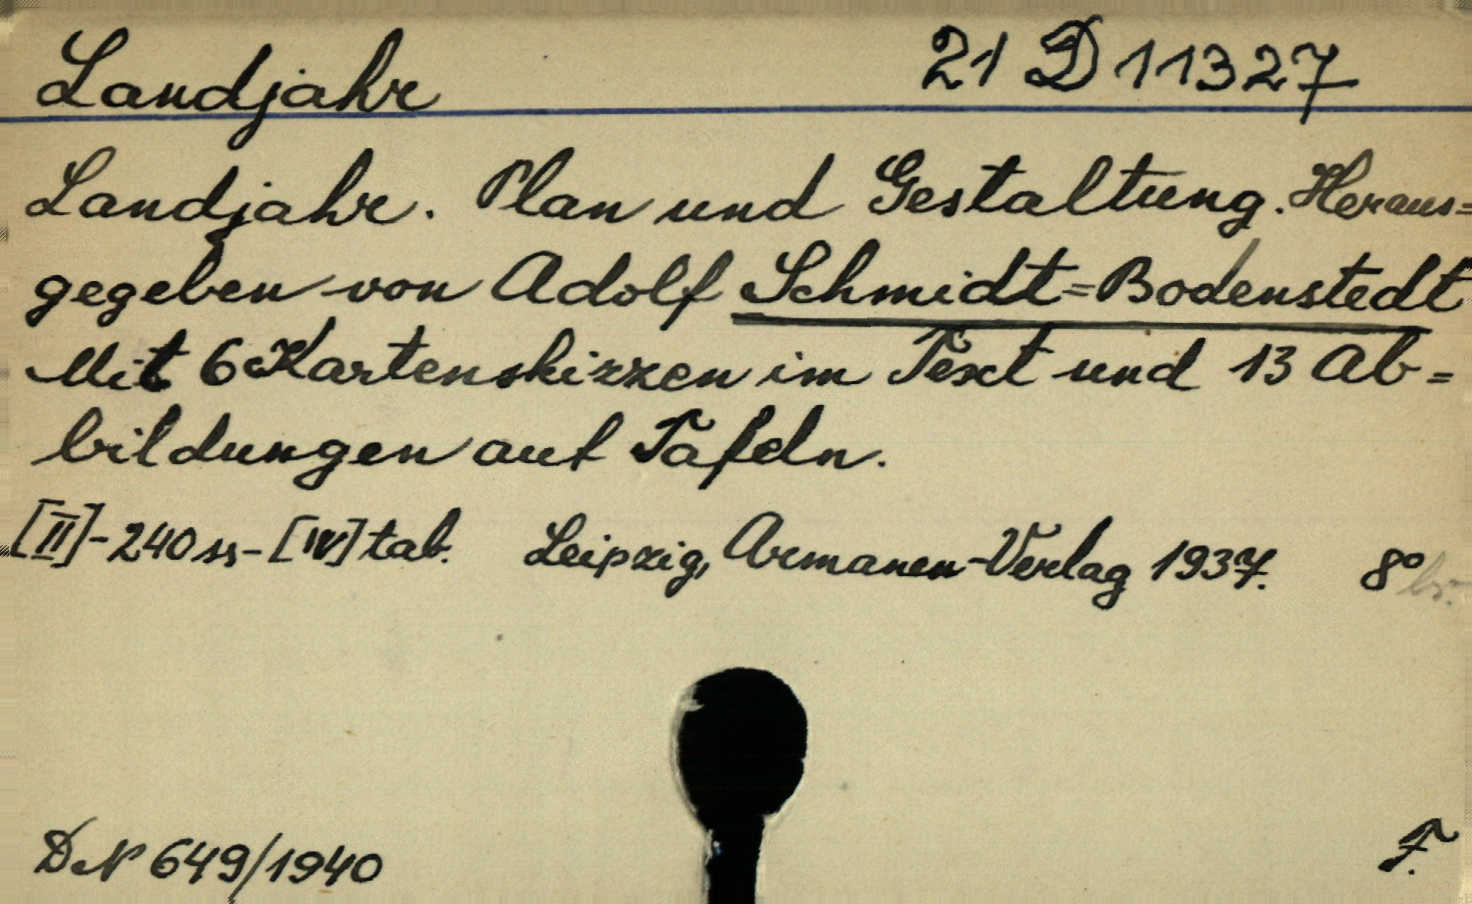 Landjahr 21 D 11327
Landjahr. Plan und Gestaltung. Heraus=
gegeben von Adolf Schmidt=Bodenstedt
Mit 6 Kartenskizzen im Text und 13 Ab=
bildungen auf Tafeln.
[II]-240 ss-[IV] tab. Leipzig, Armanen-Verlag 1937. 8° br.
DN 649/1940 F.